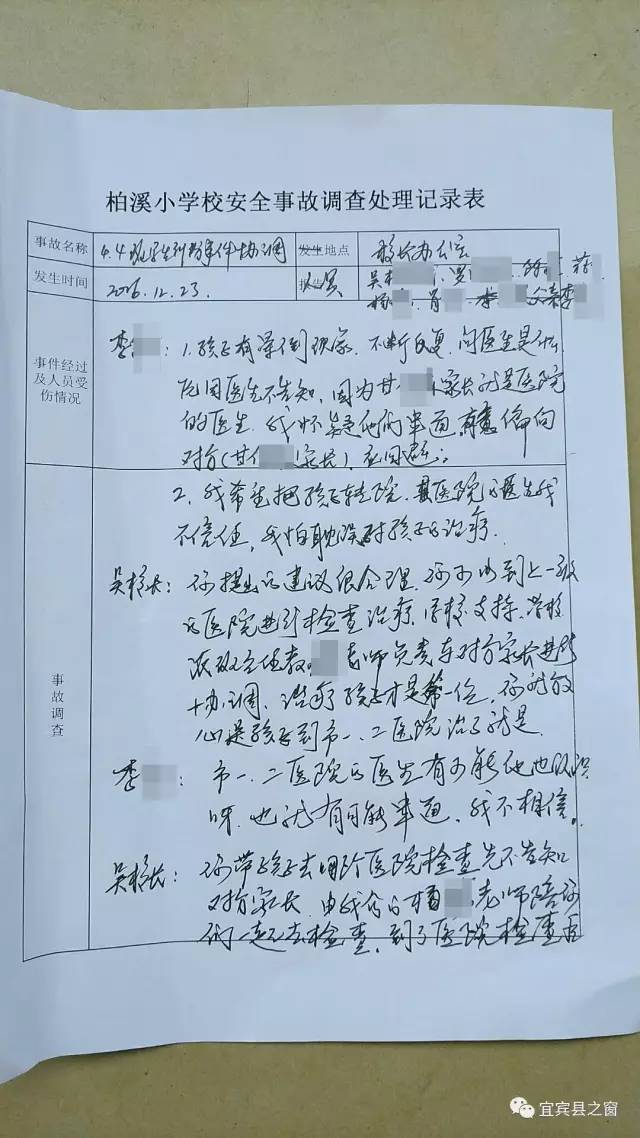 柏溪小学校安全事故调查处理记录表
事故名称 4.4班学生纠纷事件协调 发生地点 校长办公室
发生时间 2016.12.23. 吴 罗 蒋
肖 李 父亲李
事件经过及人员受伤情况
李 : 1.孩子有晕倒现象,不断反复,问医生是什么
原因医生不告知,因为甘 家长就是医院
的医生,我怀疑他们串通,有意偏向
对方(甘 家长),应回避;
事故调查
2、我希望把孩子转院,县医院的医生我
不信任,我怕耽误对孩子的治疗.
吴校长: 你提出的建议很合理,你可以到上一级
的医院进行检查治疗,学校支持,学校
派 主任教 老师负责与对方家长进行
协调、治疗孩子才是第一位,你就放
心送孩子到市一、二医院治疗就是.
李 : 市一、二医院的医生有可能他也认识
呀,也就有可能串通,我不相信。
吴校长: 你带孩子去哪个医院检查先不告知
对方家长,由我们的 老师陪你
们一起去检查,到了医院检查后
宜宾县之窗